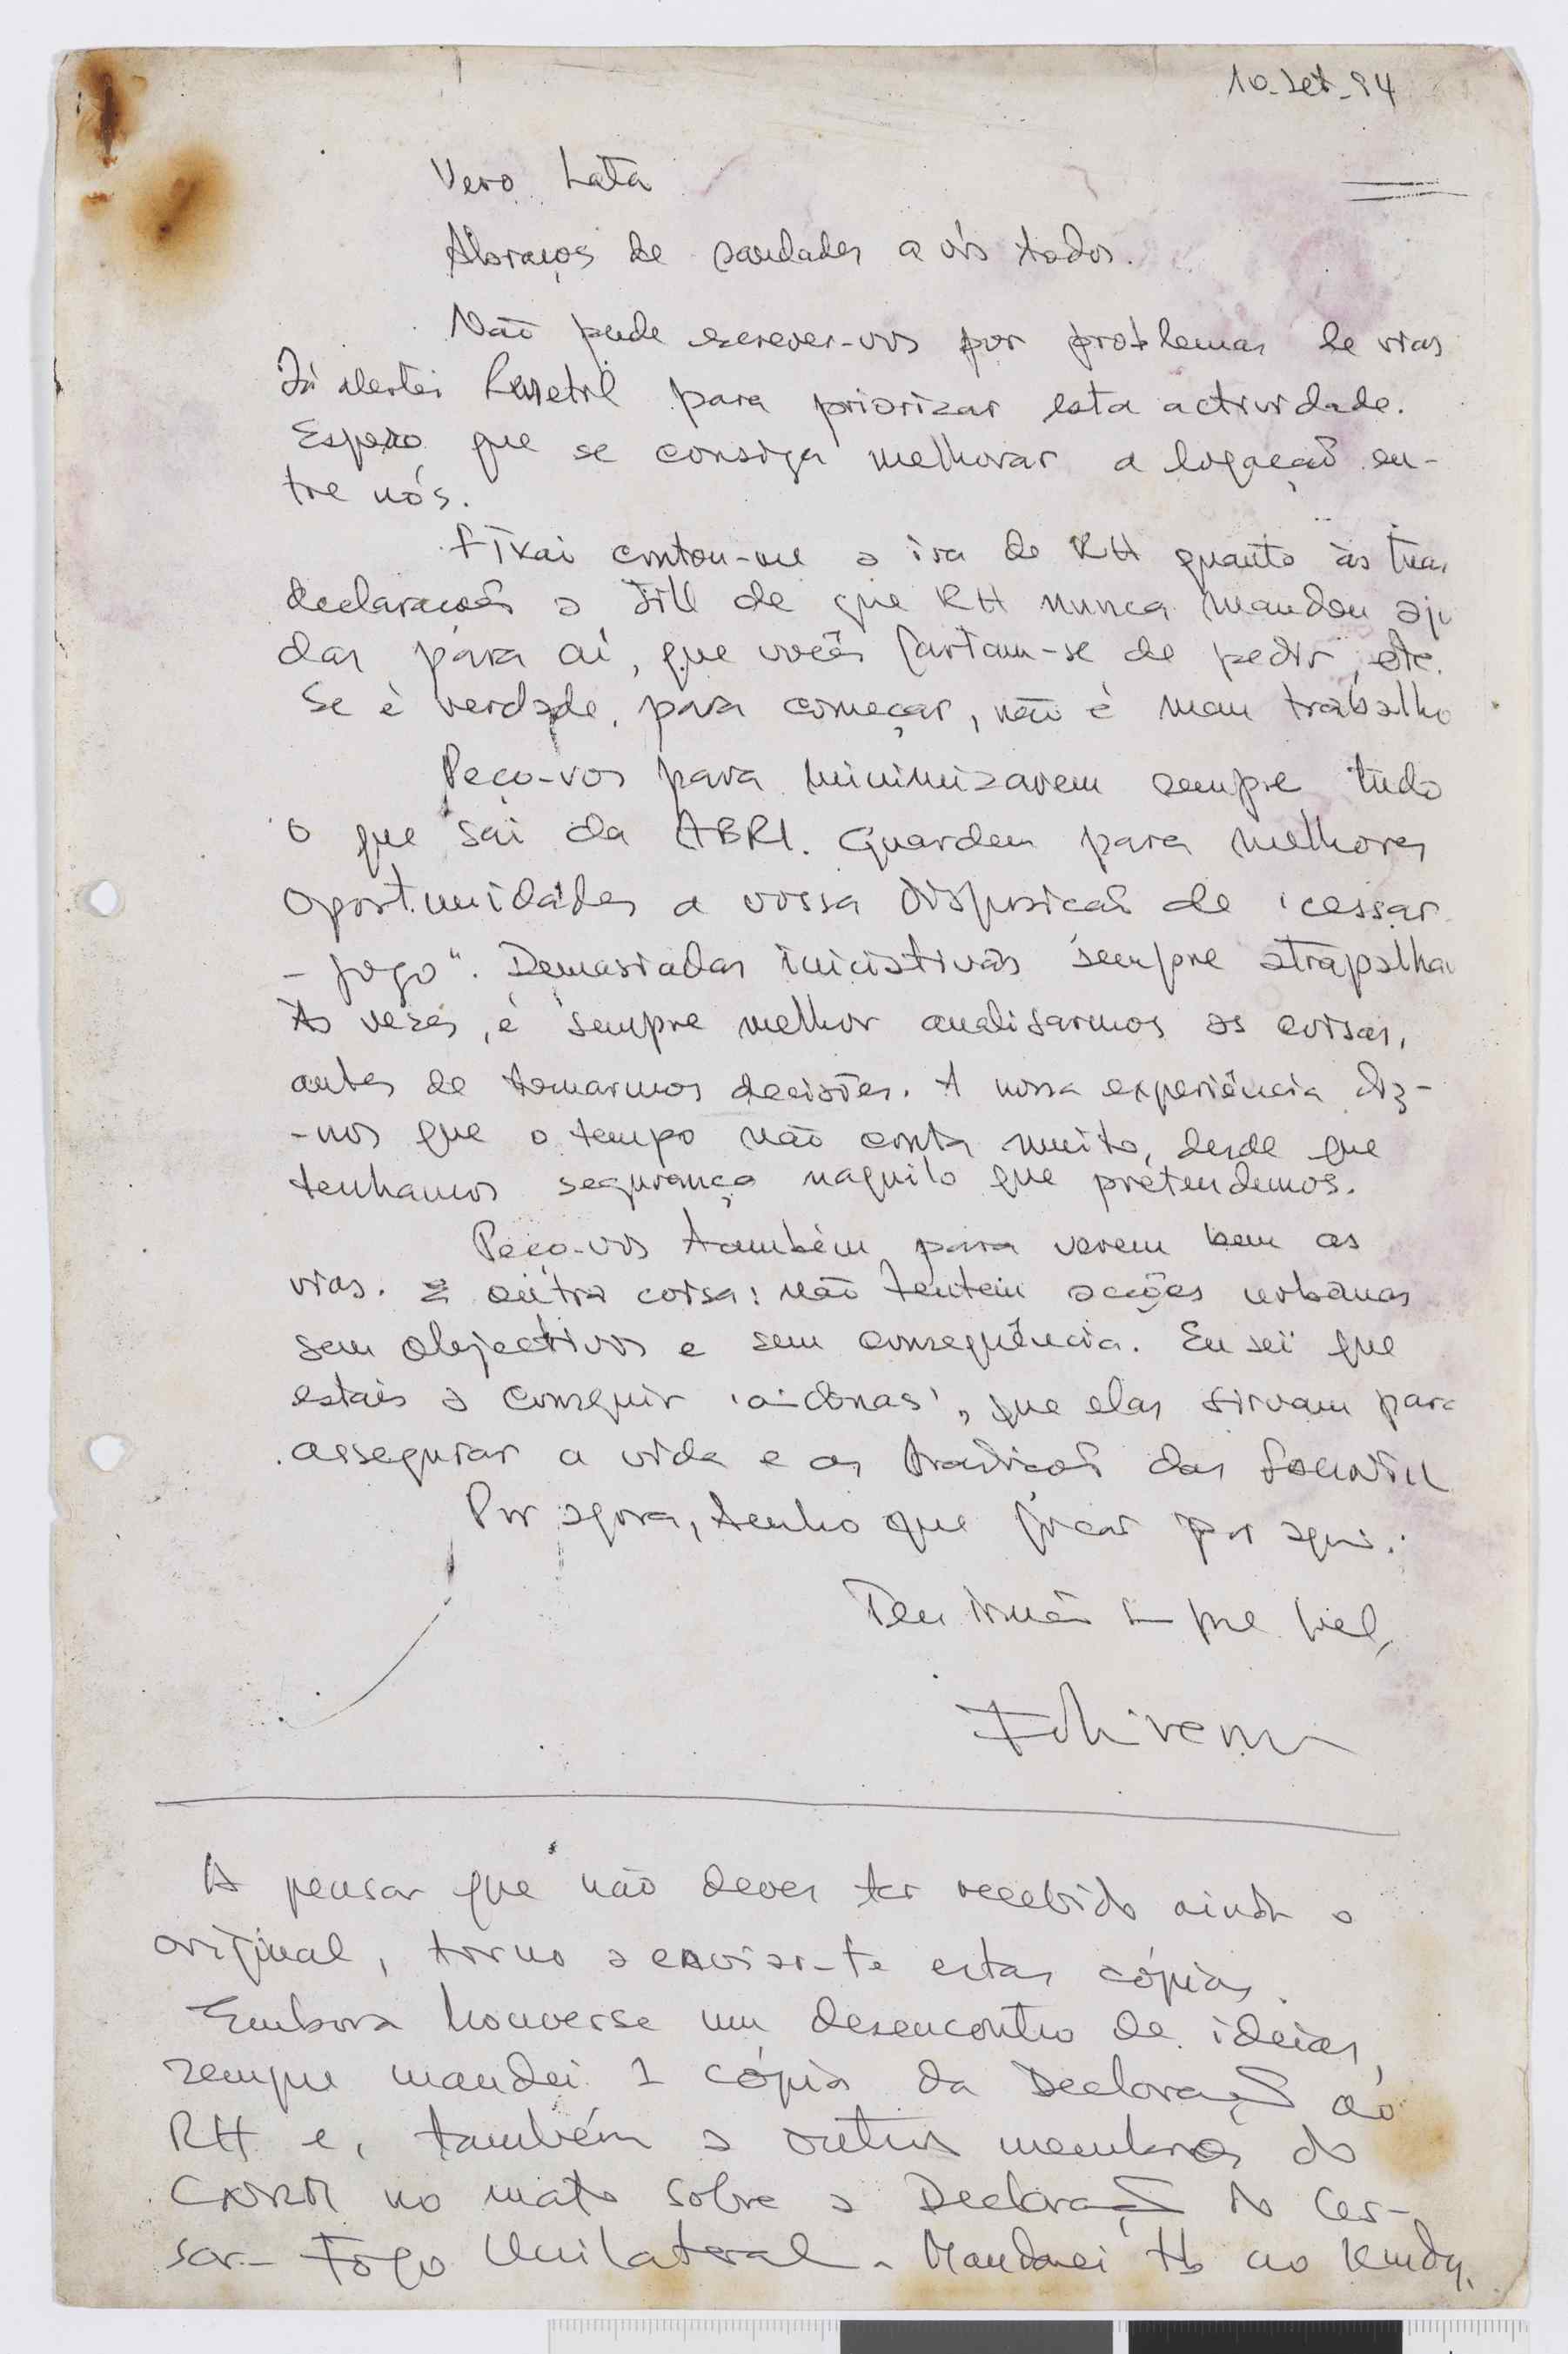 10-Set-94
Vero Lata
Abraços de saudades a vós todos.
Não pude escrever-vos por problemas de vias
Já alertei para priorizar esta actividade.
Espero que se consiga melhorar a ligação en-
tre nós.
contou-me a ira do RH quanto às tuas
declarações a Jill de que RH nunca mandou aju
das para aí, que vocês fartam-se de pedir, etc.
Se é verdade, para começar, não é mau trabalho
Peço-vos para minimizarem sempre tudo
o que sai da ABRI. Guardem para melhores
oportunidades a vossa disposição de 'cessar
- fogo". Demasiadas iniciativas sempre atrapalham
Às vezes, é sempre melhor analisarmos as coisas,
antes de tomarmos decisões. A nossa experiência diz-
-nos que o tempo não conta muito, desde que
tenhamos segurança naquilo que pretendemos.
Peço-vos também para verem bem as
vias. E outra coisa: não tentem acções urbanas
sem objectivos e sem consequência. Eu sei que
estais a conseguir 'aidonas', que elas sirvam para
assegurar a vida e as das
Por agora, tenho que ficar por aqui.
Teu irmão sempre fiel,
A pensar que não deves ter recebido ainda o
original, torno a enviar-te estas cópias.
Embora houvesse um desencontro de ideias,
sempre mandei 1 cópia da Declaração ao
RH e, também a outros membros do
CNRM no mato sobre a Declaração do Ces-
sar- Fogo Unilateral. Mandarei tb ao